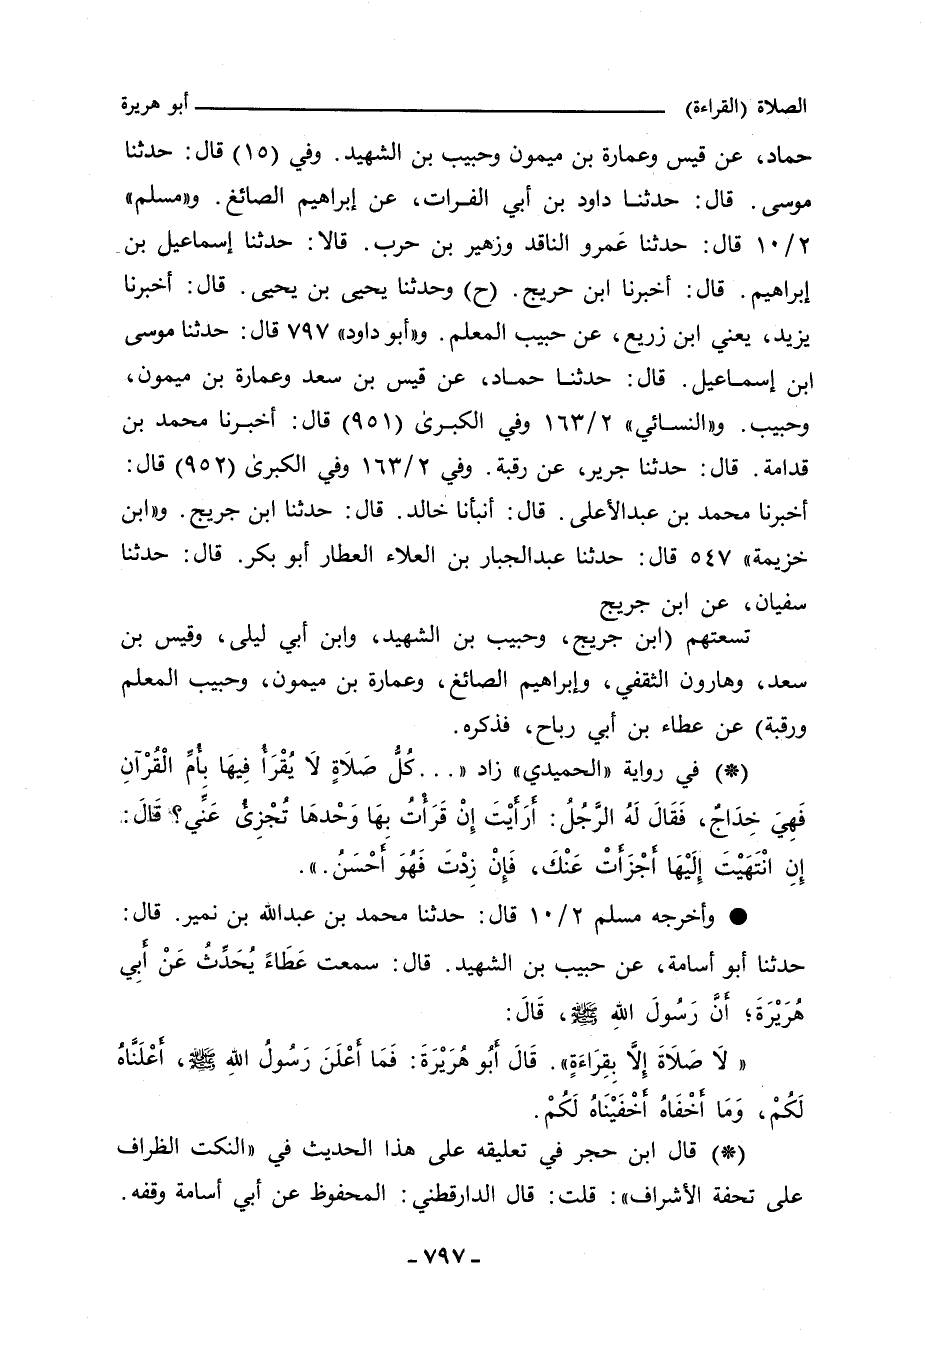 الصلاة (القراءة) ـــــــــــــــــــــــــــــــــــــــ أبو هريرة
حماد، عن قيس وعمارة بن ميمون وحبيب بن الشهيد. وفي (١٥) قال: حدثنا
موسى. قال: حدثنا داود بن أبي الفرات، عن إبراهيم الصائغ. و«مسلم»
١٠/٢ قال: حدثنا عَمرو الناقد وزهير بن حرب. قالا: حدثنا إسماعيل بن
إبراهيم. قال: أخبرنا ابن جريج. (ح) وحدثنا يحيى بن يحيى. قال: أخبرنا
يزيد، يعني ابن زريع، عن حبيب المعلم. و«أبو داود» ٧٩٧ قال: حدثنا موسى
ابن إسماعيل. قال: حدثنا حماد، عن قيس بن سعد وعمارة بن ميمون،
وحبيب. و«النسائي» ١٦٣/٢ وفي الكبرىٰ (٩٥١) قال: أخبرنا محمد بن
قدامة. قال: حدثنا جرير، عن رقبة. وفي ١٦٣/٢ وفي الكبرىٰ (٩٥٢) قال:
أخبرنا محمد بن عبدالأعلى. قال: أنبأنا خالد. قال: حدثنا ابن جريج. و«ابن
خزيمة» ٥٤٧ قال: حدثنا عبدالجبار بن العلاء العطار أبو بكر. قال: حدثنا
سفيان، عن ابن جريج
تسعتهم (ابن جريج، وحبيب بن الشهيد، وابن أبي ليلى، وقيس بن
سعد، وهارون الثقفي، وإبراهيم الصائغ، وعمارة بن ميمون، وحبيب المعلم
ورقبة) عن عطاء بن أبي رباح، فذكره.
(*) في رواية «الحميدي» زاد «...كُلُّ صَلَاةٍ لَا يُقْرَأُ فِيهَا بِأُمِّ الْقُرْآنِ
فَهِيَ خِدَاجٌ، فَقَالَ لَهُ الرَّجُلُ: أَرَأَيْتَ إِنْ قَرَأْتُ بِهَا وَحْدَهَا تُجْزِىُٔ عَنِّي؟ قَالَ:
إِنِ انْتَهَيْتَ إِلَيْهَا أَجْزَأَتْ عَنْكَ، فَإِنْ زِدْتَ فَهُوَ أَحْسَنُ.».
● وأخرجه مسلم ١٠/٢ قال: حدثنا محمد بن عبدالله بن نمير. قال:
حدثنا أبو أسامة، عن حبيب بن الشهيد. قال: سمعت عَطَاءً يُحَدِّثُ عَنْ أَبِي
هُرَيْرَةَ؛ أَنَّ رَسُولَ اللهِ ﷺ، قَالَ:
« لَا صَلَاةَ إِلَّا بِقِرَاءَةٍ». قَالَ أَبُو هُرَيْرَةَ: فَمَا أَعْلَنَ رَسُولُ اللهِ ﷺ، أَعْلَنَّاهُ
لَكُمْ، وَمَا أَخْفَاهُ أَخْفَيْنَاهُ لَكُمْ.
(*) قال ابن حجر في تعليقه على هذا الحديث في «النكت الظراف
على تحفة الأشراف»: قلت: قال الدارقطني: المحفوظ عن أبي أسامة وقفه.
- ٧٩٧ -